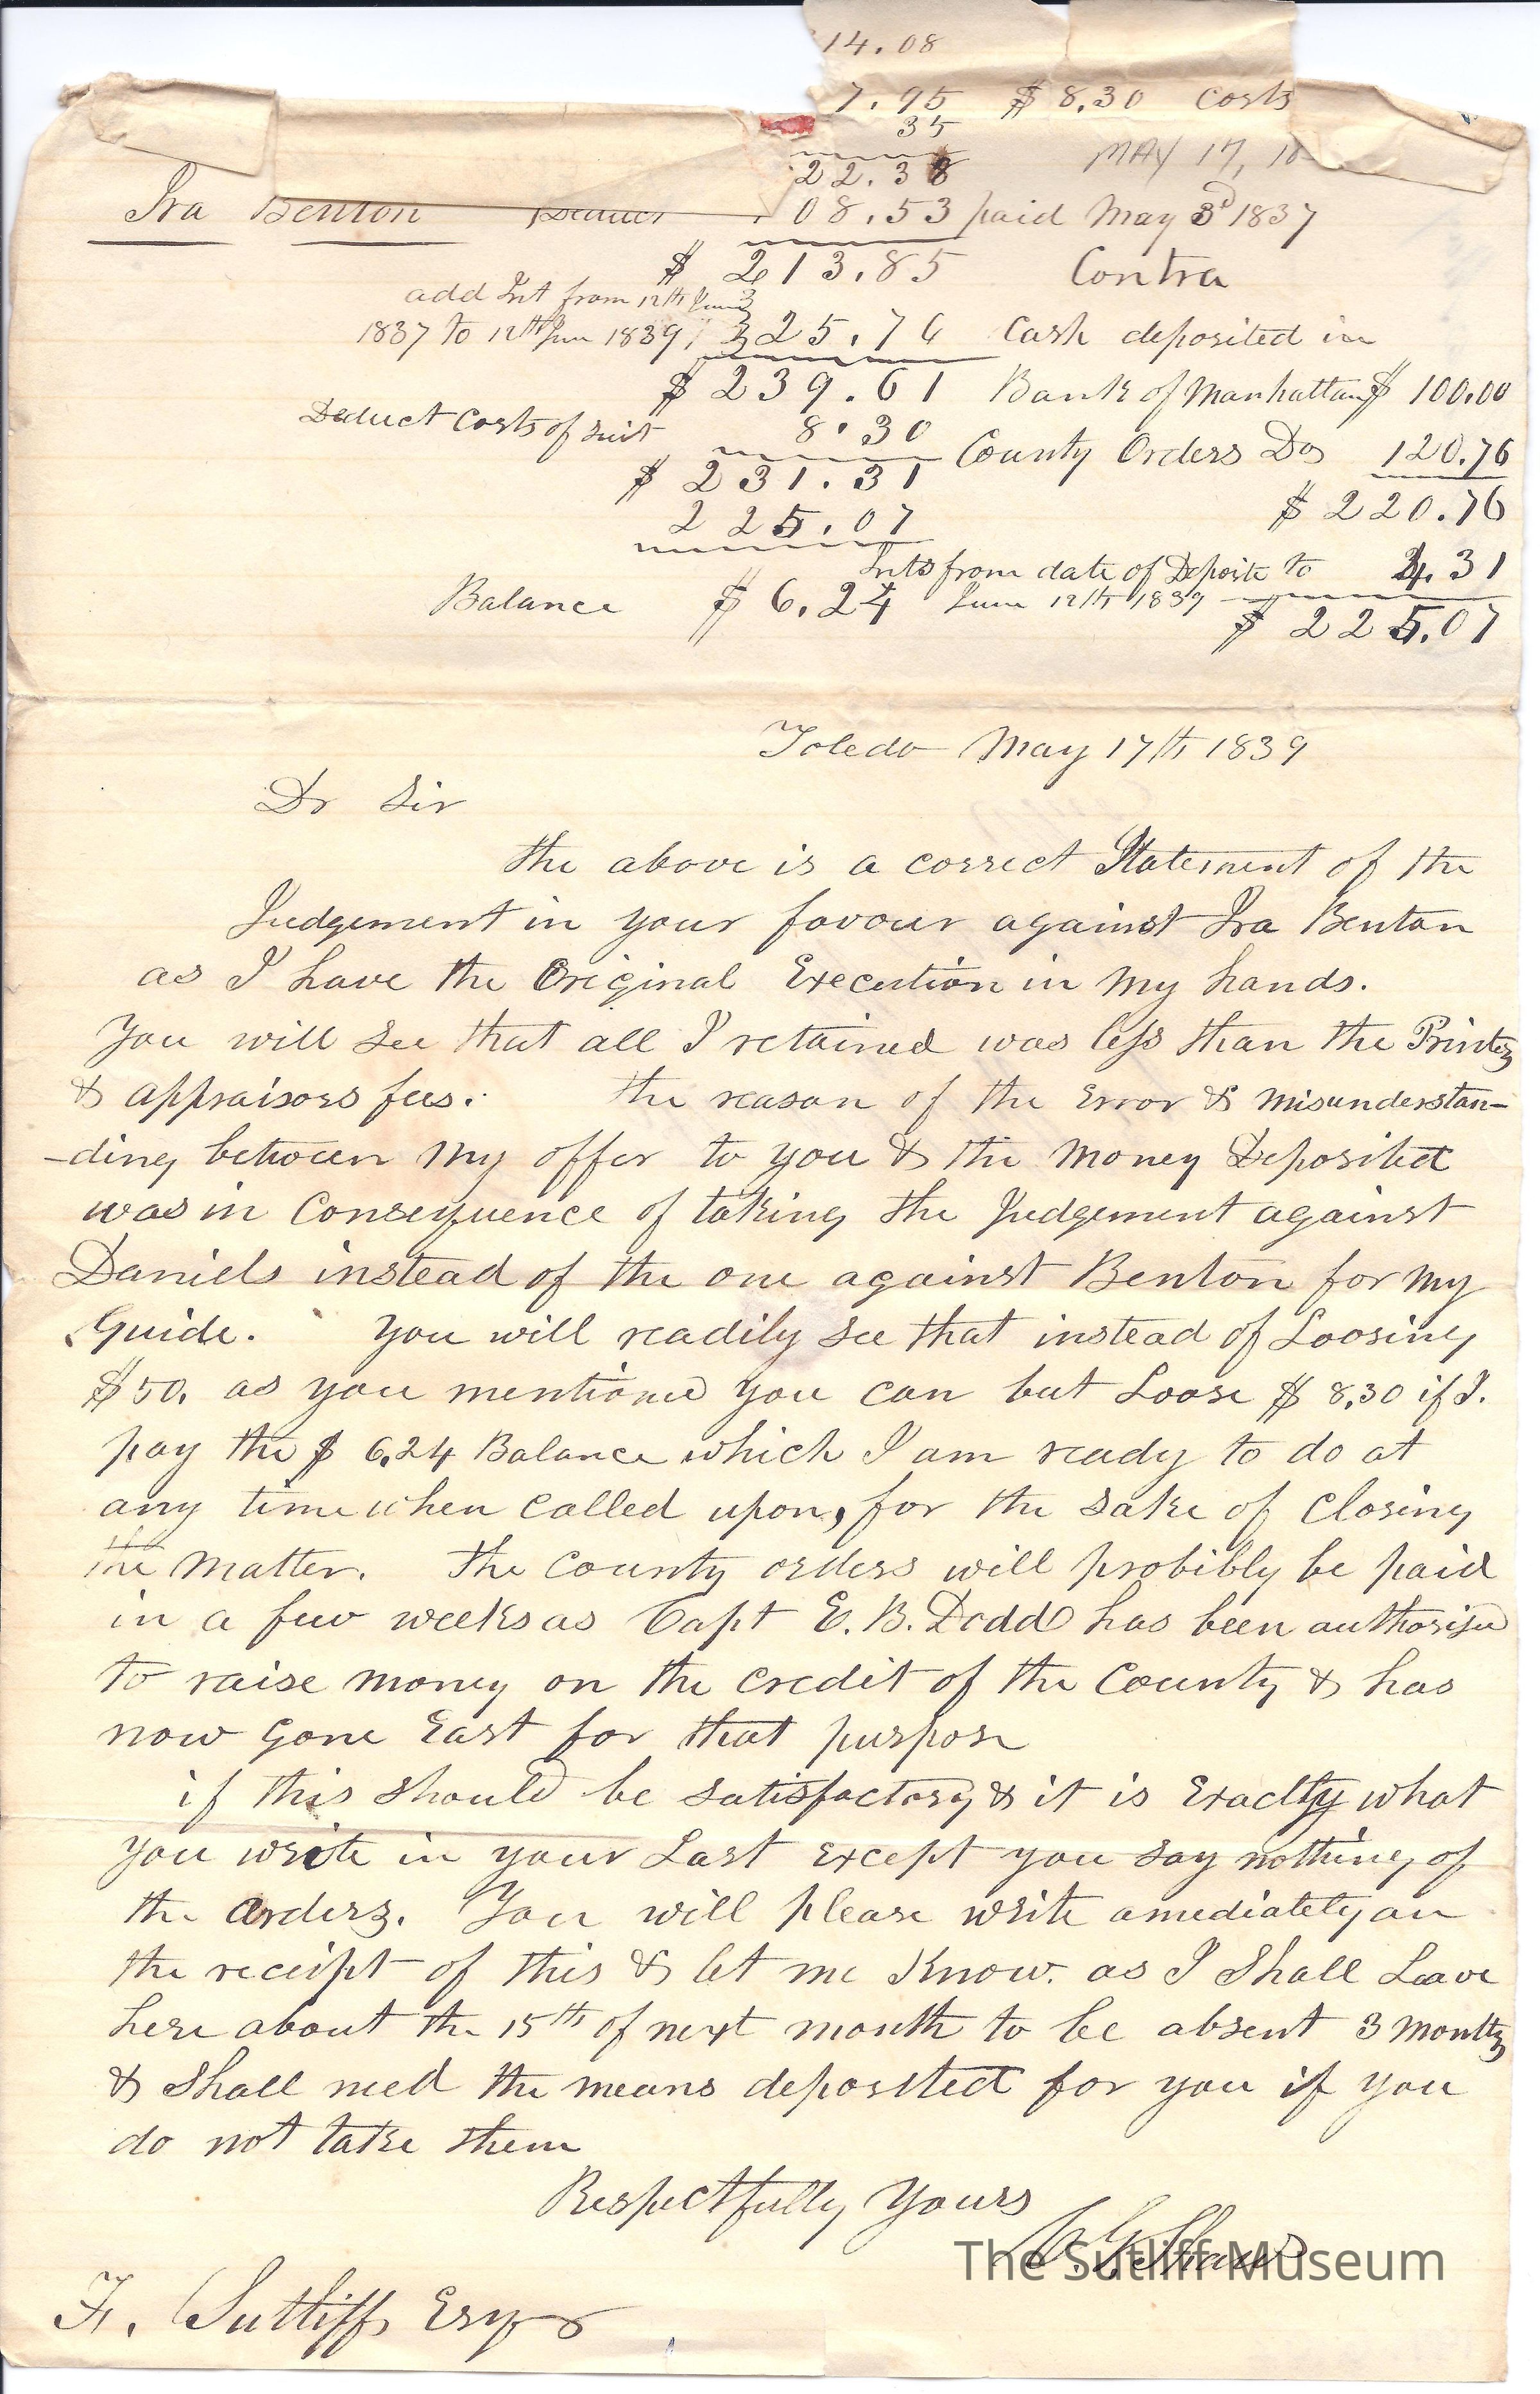 14.08
7.95 $ 8.30 Costs
35
22.38 MAY 17, 18
Ira Benton Deduct 08.53 paid May 3d 1837
$ 213.85 Contra
add Int from 12th June
1837 to 12th Jun 1839 25.76 Cash deposited in
$ 239.61 Bank of Manhattan $ 100.00
Deduct Costs of suit 8.30 County Orders Do 120.76
$ 231.31 $ 220.76
225.07 Ints from date of Deposite to 4.31
Balance $ 6.24 June 12th 1839 $ 225.07
Toledo May 17th 1839
Dr Sir
the above is a correct Statement of the
Judgement in your favour against Ira Benton
as I have the Original Execution in my hands.
You will see that all I retained was less than the Printers
& appraisors fees. the reason of the Error & misunderstan-
-ding between my offer to you & the money Deposited
was in Consequence of taking the Judgement against
Daniels instead of the one against Benton for my
Guide. You will readily see that instead of Loosing
$50. as you mentioned you can but Loose $ 8.30 if I.
pay the $ 6,24 Balance which I am ready to do at
any time when called upon, for the sake of closing
the matter. the County orders will probibly be paid
in a few weeks as Capt E. B. Dodd has been authorised
to raise money on the credit of the County & has
now gone East for that purpose
if this should be satisfactory & it is Exactly what
you write in your Last except you say nothing of
the orders. You will please write amediately on
the receipt of this & let me Know. as I Shall Leave
here about the 15th of next month to be absent 3 months
& Shall need the means deposited for you if you
do not take them
Respectfully Yours
Shaw
The Sutliff Museum
F. Sutliff Esqr